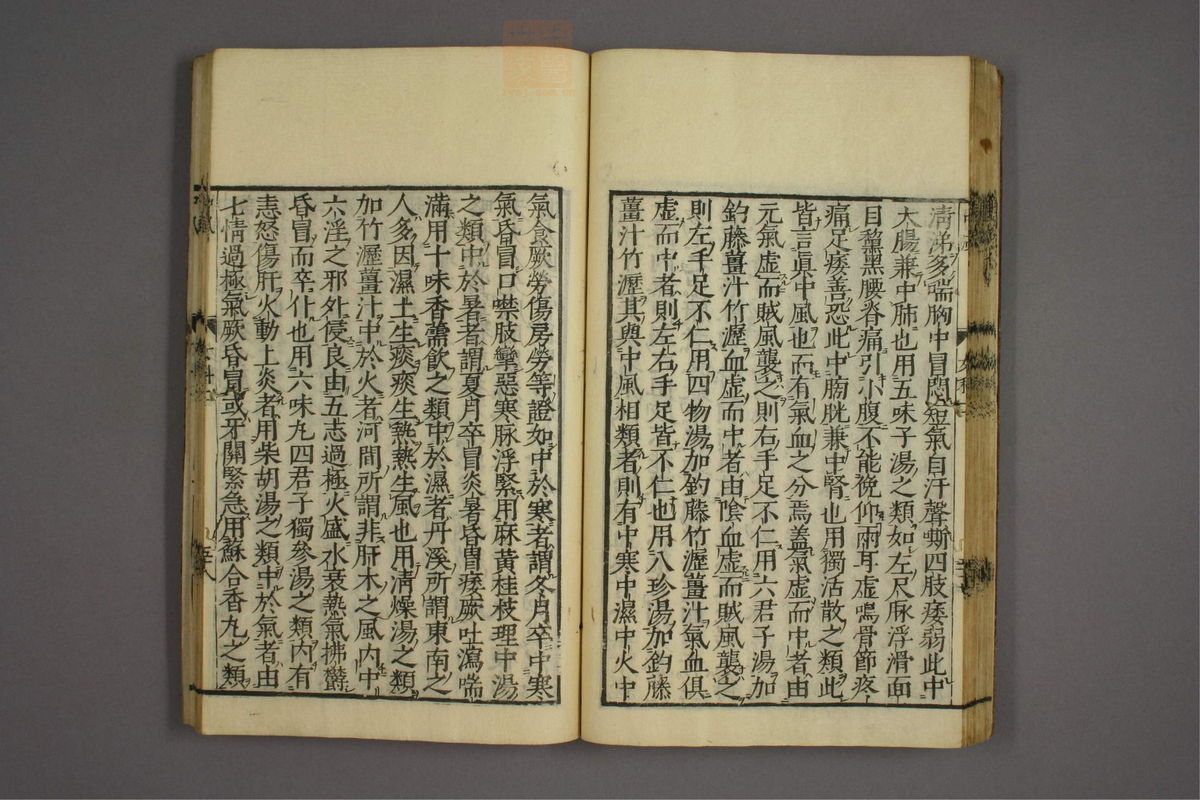 清涕多喘胸中冒悶短氣自汗聲嘶四肢痿弱此中
大腸兼中肺也用五味子湯之類如左尺脉浮滑面
目黧黑腰脊痛引小腹不能俛仰兩耳虚鳴骨節疼
痛足痿善恐此中膀胱兼中腎也用獨活散之類此
皆言眞中風也而有氣血之分焉蓋氣虚而中者由
元氣虚而賊風襲之則右手足不仁用六君子湯加
釣藤薑汁竹瀝血虚而中者由陰血虚而賊風襲之
則左手足不仁用四物湯加釣藤竹瀝薑汁氣血俱
虚而中者則左右手足皆不仁也用八珍湯加釣藤
薑汁竹瀝其與中風相類者則有中寒中濕中火中
氣食厥勞傷房勞等證如中於寒者謂冬月卒中寒
氣昏冒口噤肢攣惡寒脉浮緊用麻黄桂枝理中湯
之類中於暑者謂夏月卒冒炎暑昏冒痿厥吐瀉喘
滿用十味香薷飲之類中於濕者丹溪所謂東南之
人多因濕土生痰痰生熱熱生風也用清燥湯之類
加竹瀝薑汁中於火者河間所謂非肝木之風内中
六淫之邪外侵良由五志過極火盛水衰熱氣拂欝
昏冒而卒仆也用六味丸四君子獨參湯之類内有
恚怒傷肝火動上炎者用柴胡湯之類中於氣者由
七情過極氣厥昏冒或牙關緊急用蘇合香丸之類